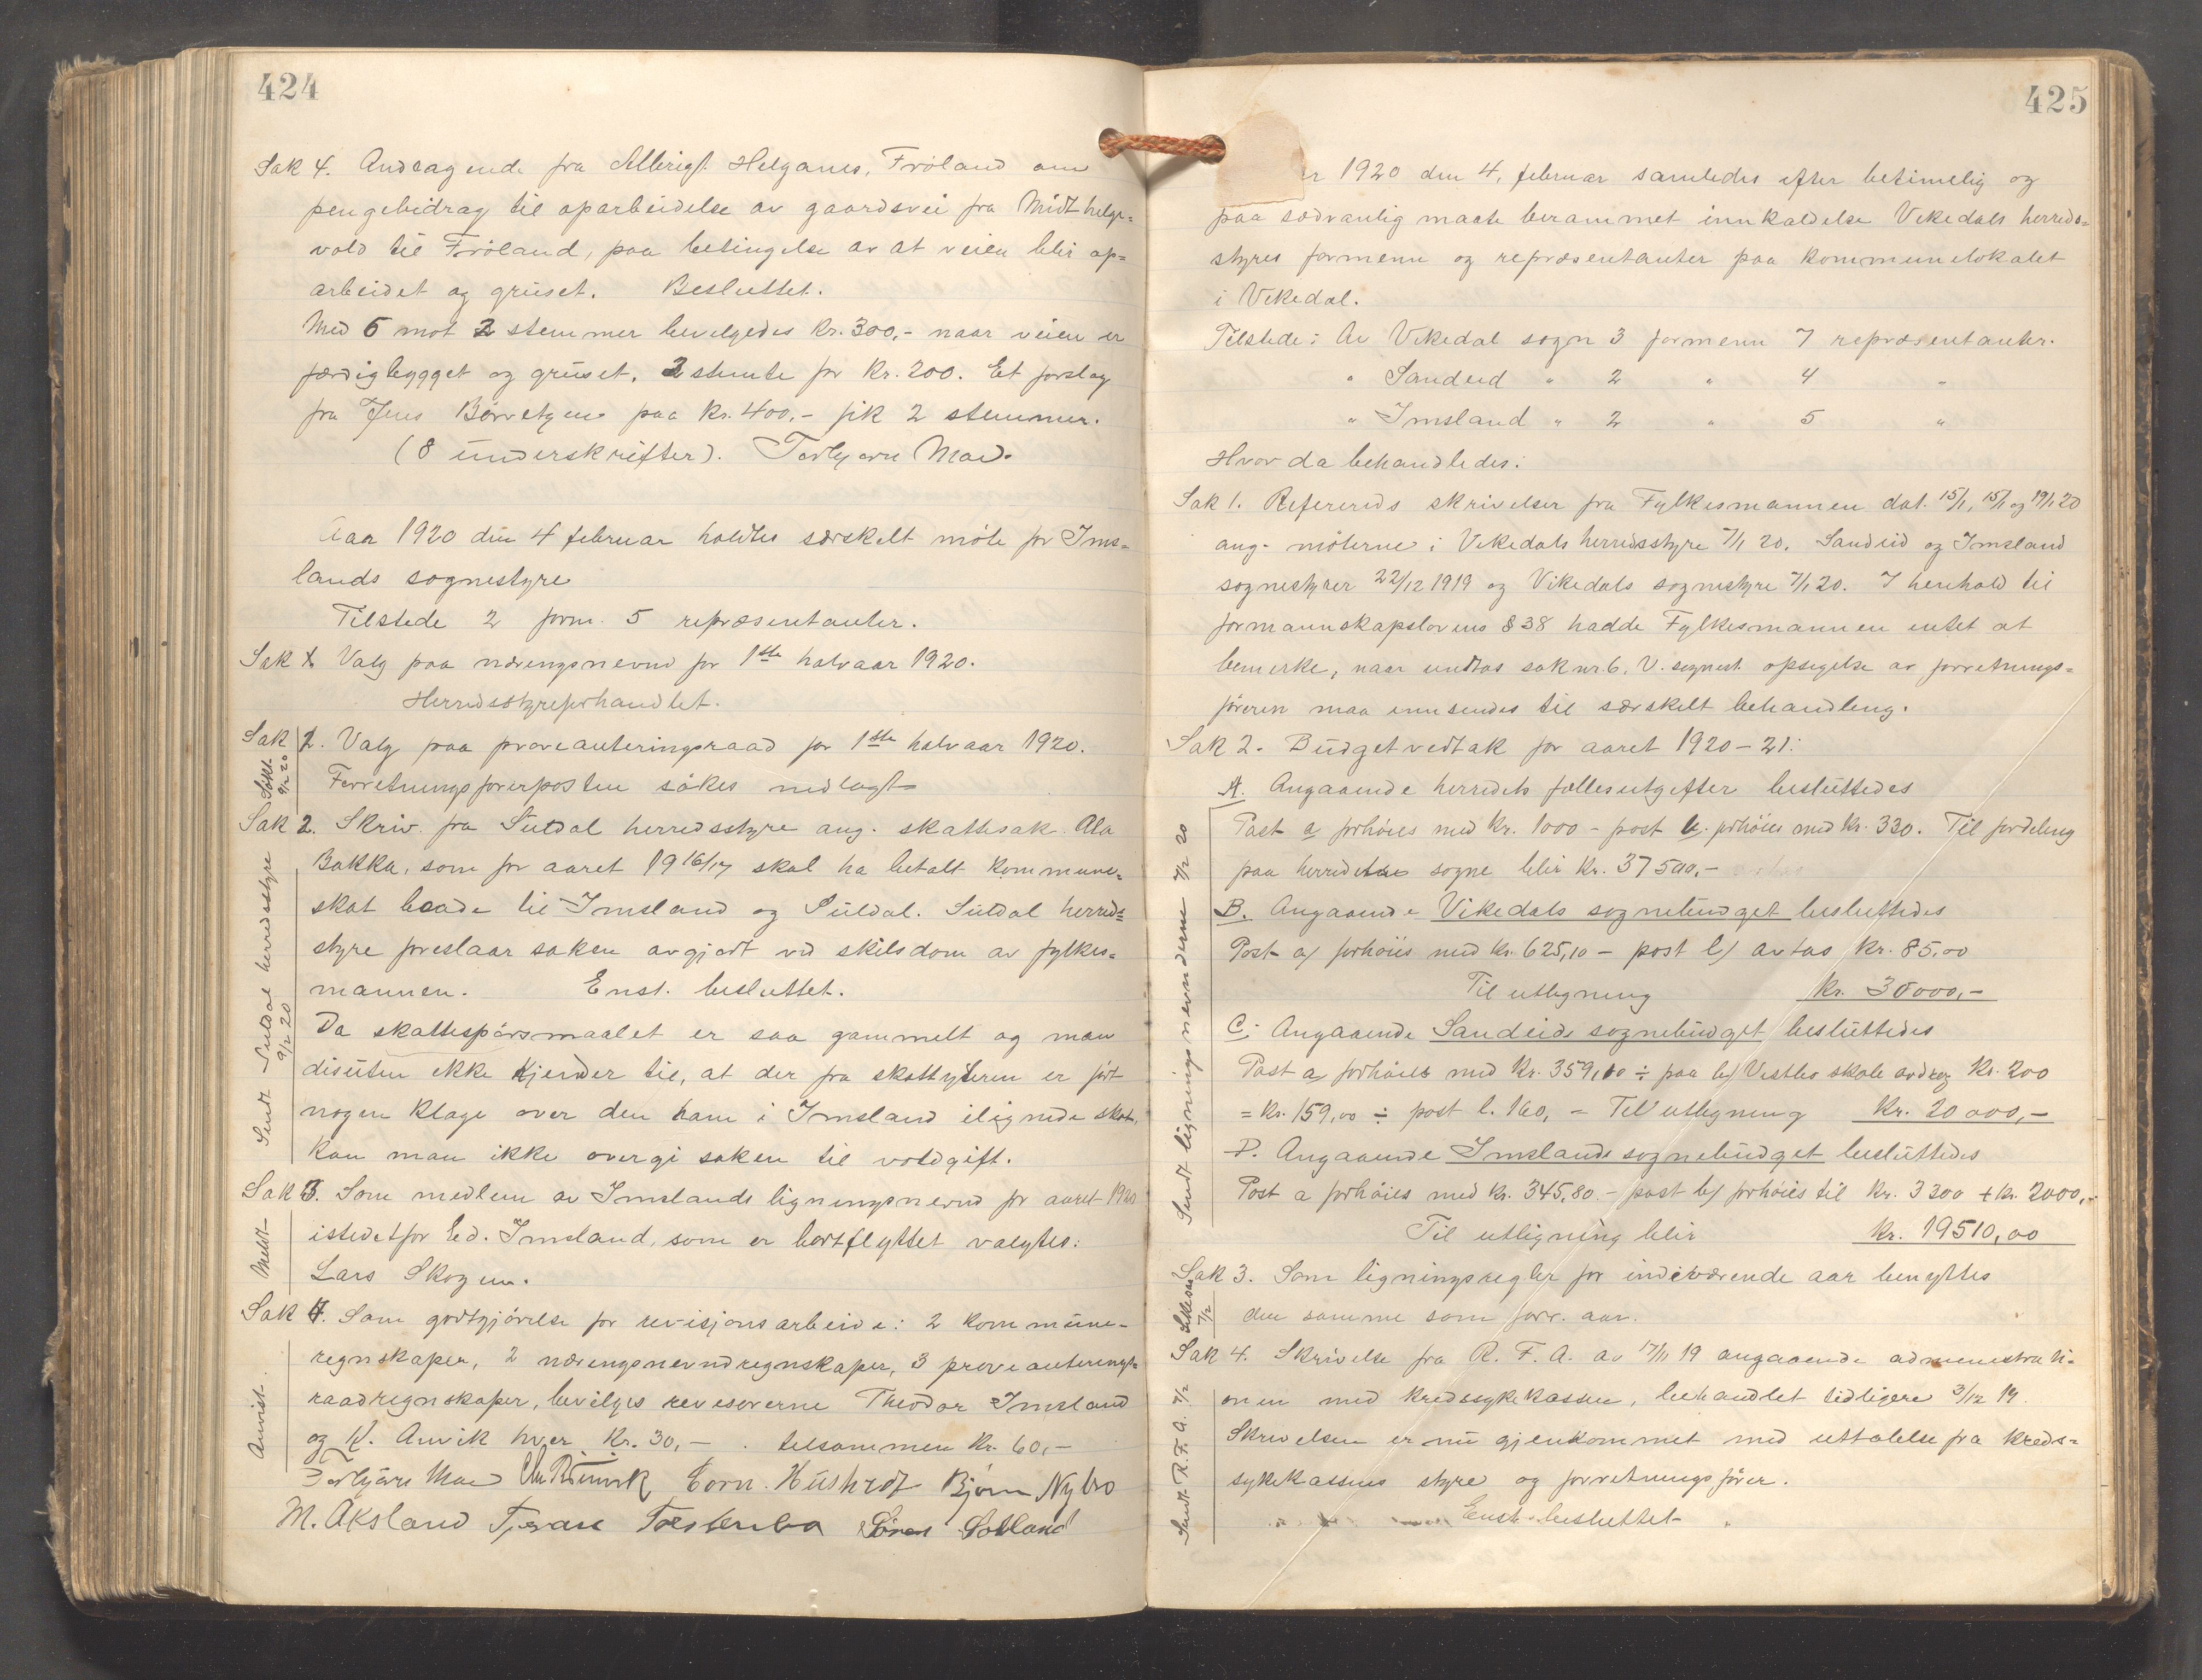 424
Sak 4. Andragende fra Albrigt Helganes, Fröland om
pengebidrag til oparbeidelse av gaardsvei fra Midthelge=
vold til Fröland, paa betingelse av at veien blir op=
arbeidet og gruset. Besluttet.
Med 5 mot 2 stemmer bevilgedes kr. 300,- naar veien er
færdigbygget og gruset. 2 stemte for kr. 200. Et forslag
fra Jens paa kr. 400,- fik 2 stemmer.
(8 underskrifter). Torbjørn Moe.
Aar 1920 den 4 februar holdtes særskelt möte for Ims=
lands sognestyre
Tilstede 2 form. 5 repræsentanter.
Sak Valg paa næringsnevnd for 1ste halvaar 1920.
Herredsstyreforhandlet.
Sak 1. Valg paa provianteringsraad for 1ste halvaar 1920.
Forretningsförerposten sökes nedlagt
Sak 2. Skriv. fra Suldal herredsstyre ang. skattesak. Ola
Bakka, som for aaret 1916/17 skal ha betalt kommune=
skat baade til Imsland og Suldal. Suldal herreds=
styre foreslaar saken avgjort ved skilsdom av fylkes=
mannen. Enst. besluttet.
Da skattespörsmaalet er saa gammelt og man
disuten ikke kjender til, at der fra skattyteren er fört
nogen klage over den ham i Imsland ilignede skat,
kan man ikke overgi saken til voldgift.
Sak 3. Som medlem av Imslands ligningsnevnd for aaret 1920
istedetfor Ed. Imsland, som er bortflyttet valgtes:
Lars Skogen.
Sak 4. Som godtgjörelse for revisjonsarbeide: 2 kommune-
regnskaper, 2 næringsnevndregnskaper, 3 provianterings=
raadregnskaper, bevilges revisorerne Theodor Imsland
og K. Anvik hver kr. 30,- tilsammen kr. 60,-
Torbjørn Moe Corn. Bjørn Nybro
M. Aksland Søren Solland
Sökt 9/2 20
Sendt Suldal herredsstyre 9/2 20
Meldt
Anvist.
425
1920 den 4. februar samledes efter betimelig og
paa sædvanlig maate berammet innkaldelse Vikedals herreds=
styres formenn og repræsentanter paa kommunelokalet
i Vikedal.
Tilstede: Av Vikedal sogn 3 formenn 7 repræsentanter.
" Sandeid " 2 " 4 "
" Imsland " 2 " 5 "
Hvor da behandledes:
Sak 1. Refereredes skrivelser fra Fylkesmannen dat. 15/1, 15/1 og 19/1 20
ang. möterne i Vikedals herredsstyre 7/1 20. Sandeid og Imsland
sognestyrer 22/12 1919 og Vikedals sognestyre 7/1 20. I henhold til
formannskapslovens § 38 hadde Fylkesmannen intet at
bemerke, naar undtas sak nr 6. V. sognest. opsigelse av forretnings=
föreren maa innsendes til særskelt behandling.
Sak 2. Budgetvedtak for aaret 1920-21:
A. Angaaende herredets fællesutgifter besluttedes
Post a forhöies med kr. 1000 - post b. forhöies med kr. 330. Til fordeling
paa herredets sogne blir kr. 37500,-
B. Angaaende Vikedals sognebudget besluttedes
Post a) forhöies med kr. 625,10 - post b) avtas kr. 85,00
Til utligning kr. 30000,-
C. Angaaende Sandeids sognebudget besluttedes
Post a) forhöies med kr. 359,00 ÷ paa b) Vestbö skole avdrag kr. 200
= kr. 159,00 ÷ post l. 160, = Til utligning kr. 20000,-
D. Angaaende Imslands sognebudget besluttedes
Post a forhöies med kr. 345,80.- post b) forhöies til kr. 3300 + kr. 2000,-
Til utligning blir kr. 19510,00
Sak 3. Som ligningsregler for indeværende aar benyttes
den samme som forr. aar.
Sak 4. Skrivelse fra R. F. A. av 17/11 19 angaaende administrati=
onen med kredssykekassen, behandlet tidligere 3/12 19.
Skrivelsen er nu gjenkommet med uttalelse fra kreds=
sykekassens styre og forretningsförer.
Enst. besluttet
Sendt ligningsnevnderne 7/2 20
7/2
Sendt R. F. A. 7/2